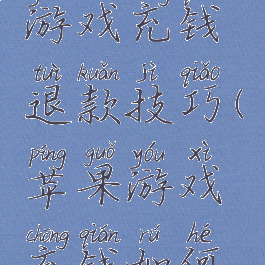 游戏充钱
tuì kuǎn jì qiǎo
退款技巧(
píng guǒ yóu xì
苹果游戏
chōng qián rú hé
充钱如何